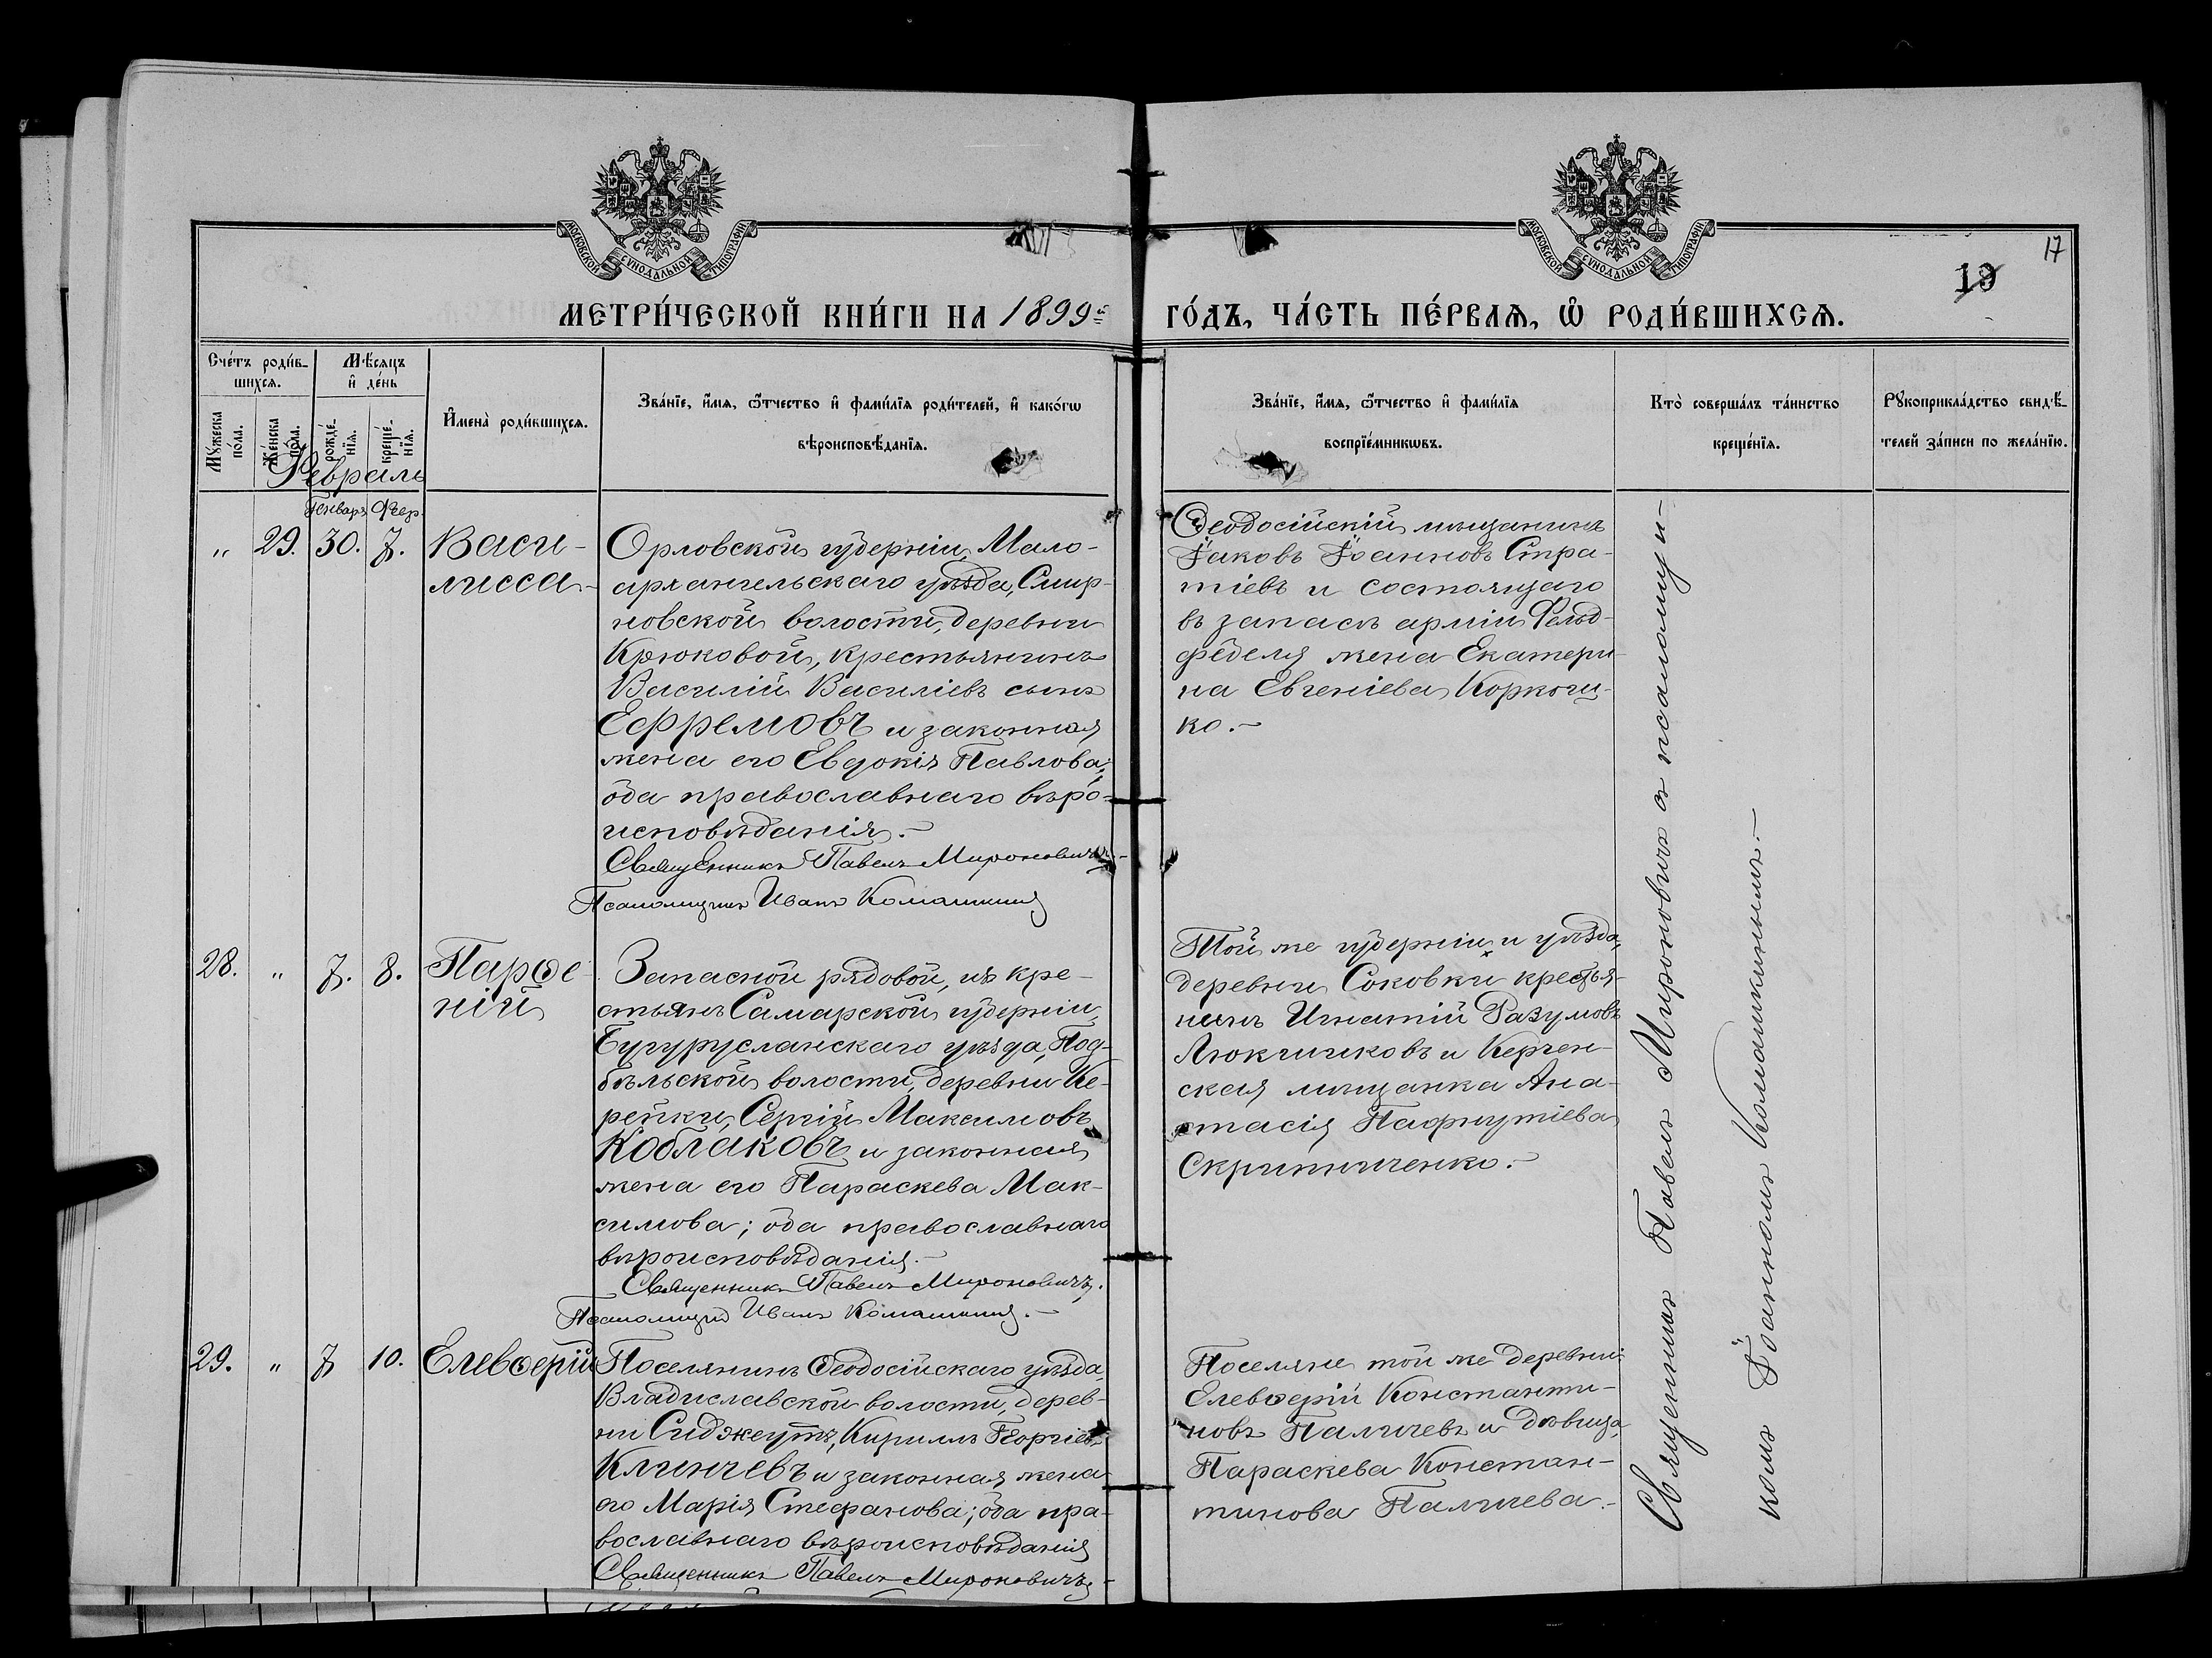 МОСКОВСКОЙ СѴНОДАЛЬНОЙ ТИПОГРАФІИ
МОСКОВСКОЙ СѴНОДАЛЬНОЙ ТИПОГРАФІИ
17
19
МЕТРИ́ЧЕСКОЙ КНИ́ГИ НА 1899 г.
ГО́ДЪ, ЧА́СТЬ ПЕ́РВАѦ, Ѿ РОДИ́ВШИХСѦ.
Сче́тъ роди́в-
шихсѧ.
Мѣ́сяцъ
и҆ де́нь
Мꙋ́жеска
по́ла.
Же́нска
по́ла.
рожде́-
нїѧ.
креще́-
нїѧ.
И҆мена̀ роди́вшихсѧ.
Зва́нїе, и҆́мѧ, ѻ҆́тчество и҆ фами́лїѧ роди́телей, и҆ како́гѡ
вѣроисповѣ́данїѧ.
Зва́нїе, и҆́мѧ, ѻ҆́тчество и҆ фами́лїѧ
воспрїе́мникѡвъ.
Кто̀ соверша́лъ та́инство
креще́нїѧ.
Рꙋкоприкла́дство свидѣ́-
телей за́писи по жела́нїю.
Февраль
Генваря Февр.
„ 29. 30. 7. Васи-
лисса.-
Орловской губерніи, Мало-
архангельскаго уѣзда, Смир-
новской волости, деревни
Крюковой, крестьянинъ
Василій Василіевъ сынъ
Ефремовъ и законная
жена его Евдокія Павлова;
оба православнаго вѣро-
исповѣданія.-
Священникъ Павелъ Мироновичъ.-
Псаломщикъ Иванъ Комашкинъ
Ѳеодосійскій мѣщанинъ
Іаковъ Іоанновъ Стра-
тіевъ и состоящаго
въ запасѣ арміи Фельд-
фебеля жена Екатери-
на Евгеніева Коркоши-
ко.-
28. „ 7. 8. Парѳе-
ній
Запасной рядовой, изъ кре-
стьянъ Самарской губерніи,
Бугурусланскаго уѣзда, Под-
бѣльской волости, деревни Ке-
рейки, Сергій Максимовъ
Коблаковъ и законная
жена его Параскева Мак-
симова; оба православнаго
вѣроисповѣданія.-
Священникъ Павелъ Мироновичъ.
Псаломщикъ Иванъ Комашкинъ.-
Той же губерніи и уѣзда,
деревни Соковки крестья-
нинъ Игнатій Разумовъ
Люкшиковъ и Керчен-
ская мѣщанка Ана-
стасія Пафнутіева
Скрипниченко.-
29. „ 7 10. Елевѳерій
Поселянинъ Ѳеодосійскаго уѣзда,
Владиславской волости, дерев-
ни Сиджеутъ, Кириллъ Георгіевъ
Клинчевъ и законная жена
его Марія Стефанова; оба пра-
вославнаго вѣроисповѣданія
Священникъ Павелъ Мироновичъ
Поселяне той же деревни:
Елевѳерій Константи-
новъ Паличевъ и дѣвица,
Параскева Констан-
тинова Паличева.-
Священникъ Павелъ Мироновичъ съ псаломщи-
комъ Іоанномъ Комашкинымъ.-